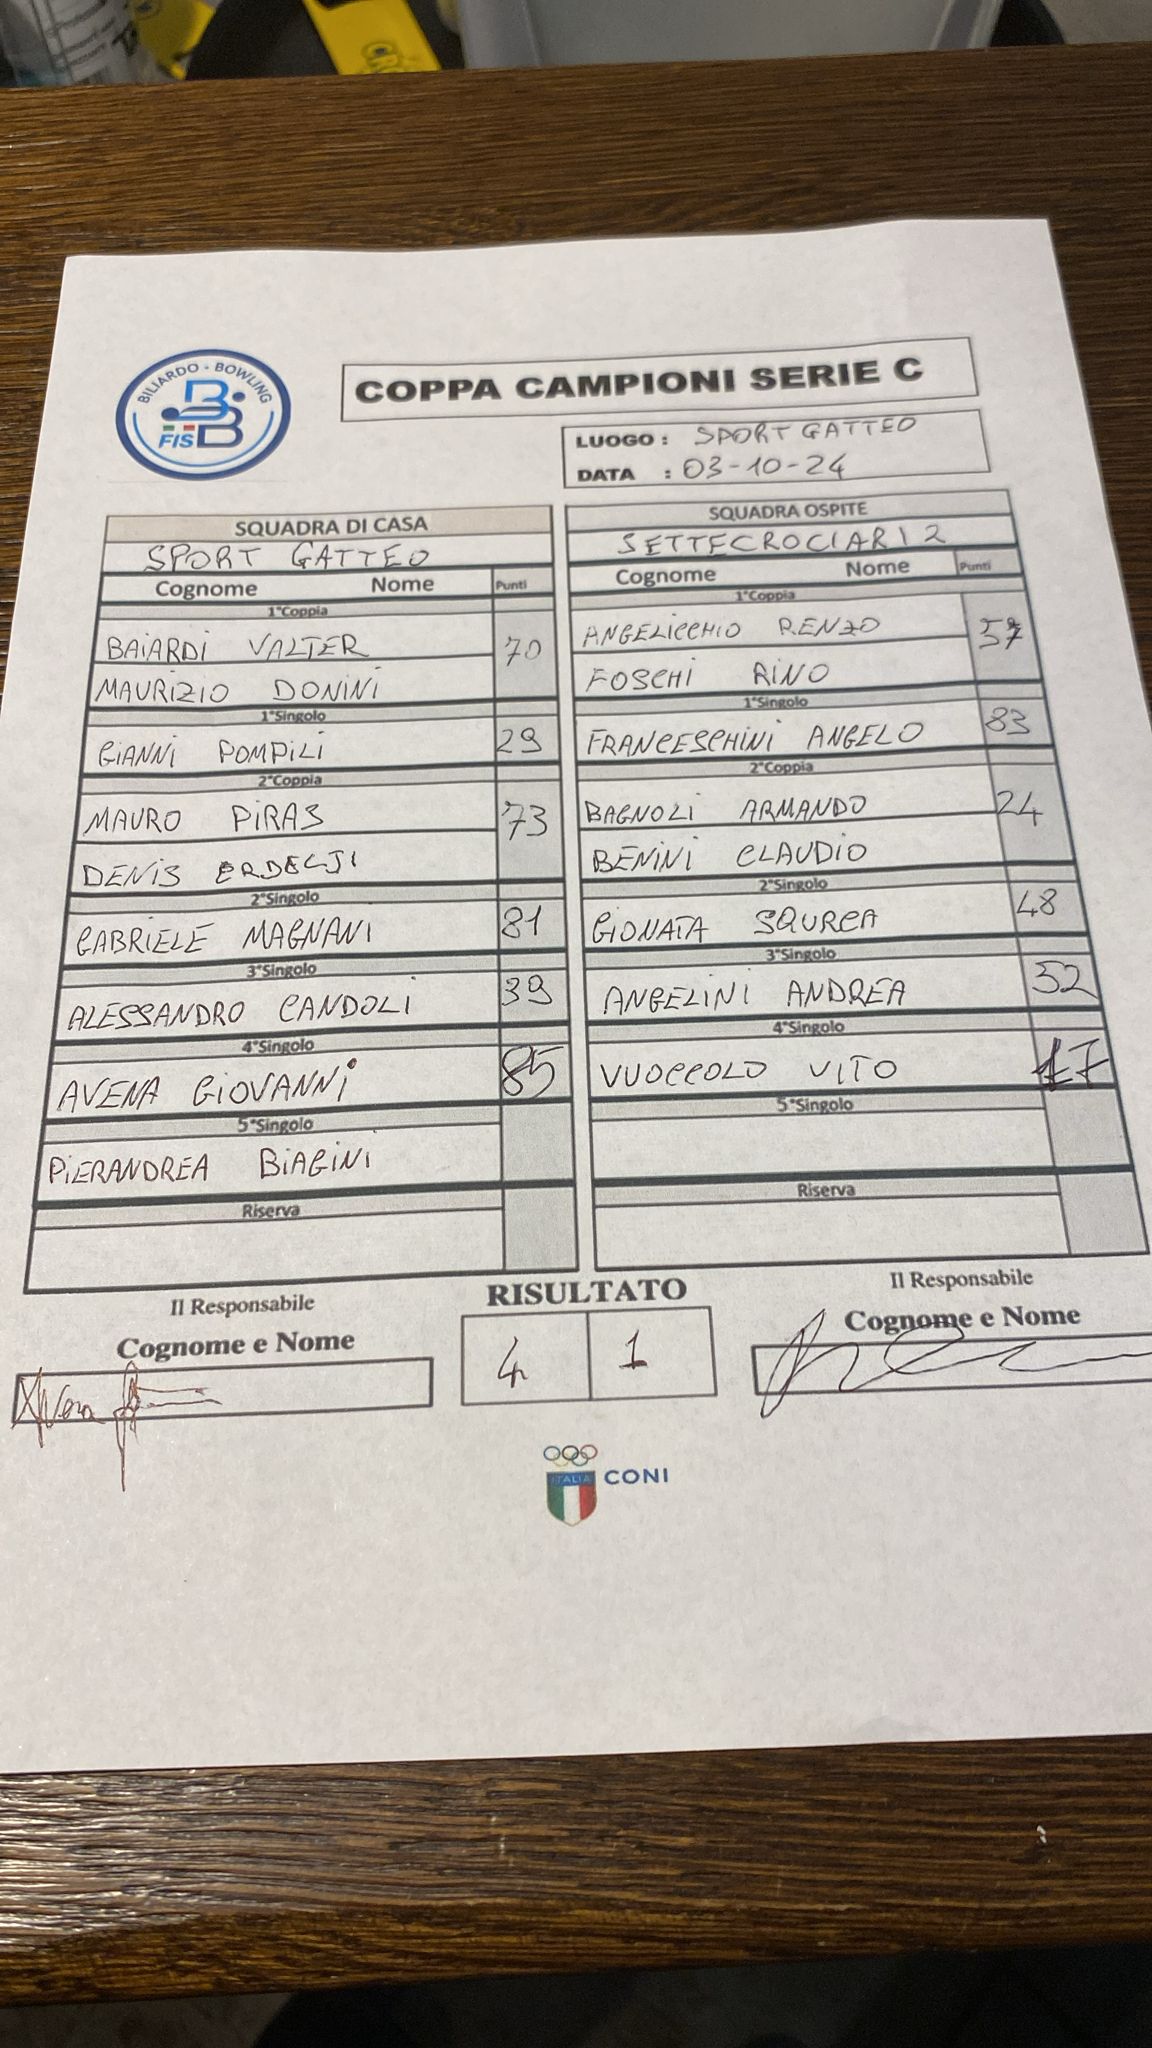 BILIARDO - BOWLING
FISBB
COPPA CAMPIONI SERIE C
LUOGO : SPORT GATTEO
DATA : 03-10-24
SQUADRA DI CASA
SPORT GATTEO
Cognome Nome Punti
1°Coppia
BAIARDI VALTER 70
MAURIZIO DONINI
1°Singolo
GIANNI POMPILI 29
2°Coppia
MAURO PIRAS 73
DENIS ERDELJI
2°Singolo
GABRIELE MAGNANI 81
3°Singolo
ALESSANDRO CANDOLI 39
4°Singolo
AVENA GIOVANNI 85
5°Singolo
PIERANDREA BIAGINI
Riserva
SQUADRA OSPITE
SETTECROCIARI 2
Cognome Nome Punti
1°Coppia
ANGELICCHIO RENZO 57
FOSCHI RINO
1°Singolo
FRANCESCHINI ANGELO 83
2°Coppia
BAGNOLI ARMANDO 24
BENINI CLAUDIO
2°Singolo
GIONATA SQURCA 48
3°Singolo
ANGELINI ANDREA 52
4°Singolo
VUOCCOLO VITO 17
5°Singolo
Riserva
Il Responsabile
Cognome e Nome
Avena
RISULTATO
4 1
Il Responsabile
Cognome e Nome
ITALIA
CONI